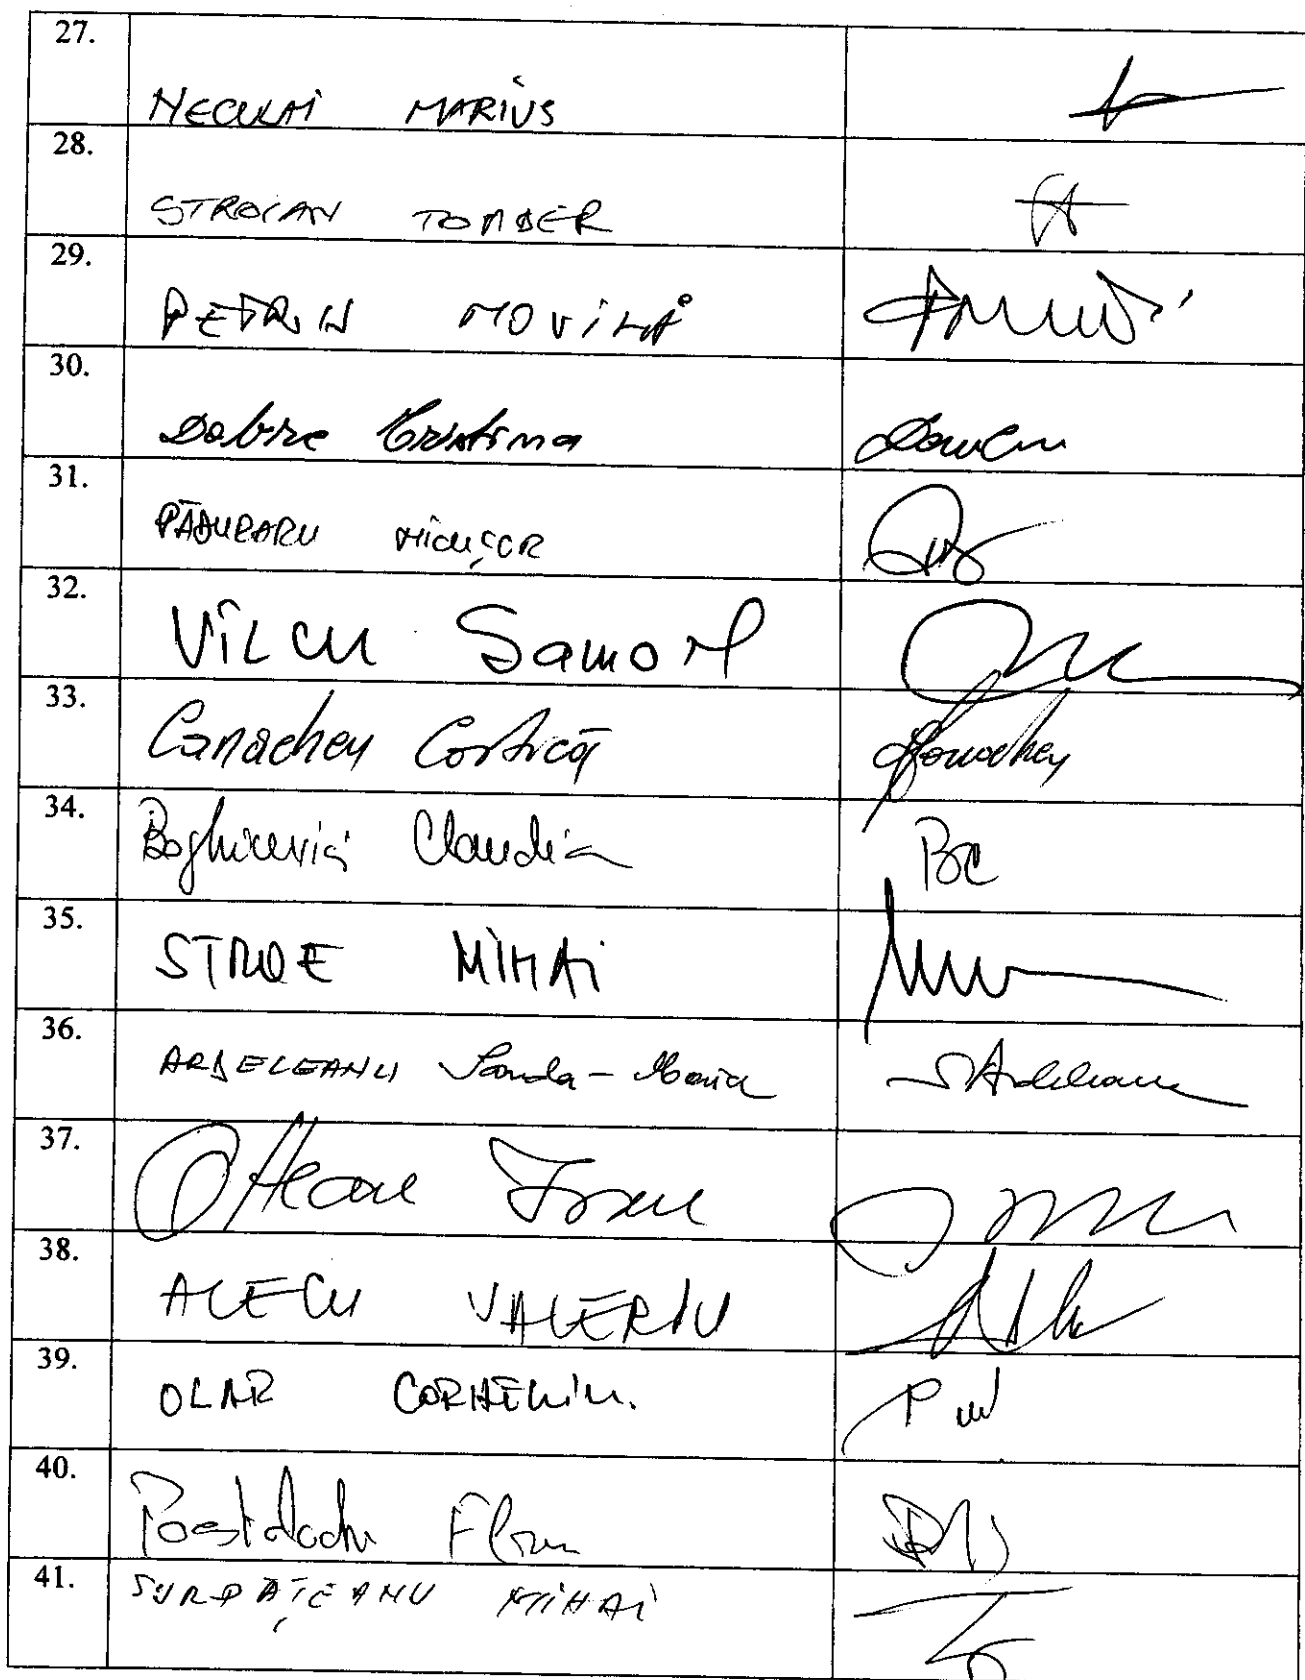 27. NECULAI MARIUS
28. STROIAN TOMBER
29. PETRU MOVILĂ
30. Dobre Cristina
31. PĂDURARU Nicușor
32. VÎLCU Samoil
33. Canacheu Costică
34. Boghicevici Claudia BC
35. STROE MIHAI
36. ARDELEANU Sanda-Maria SArdeleanu
37. Olteanu Ioan
38. ALECU VALERIU
39. OLAR CORNELIU.
40. Postolachi Florin
41. SURPĂȚEANU MIHAI